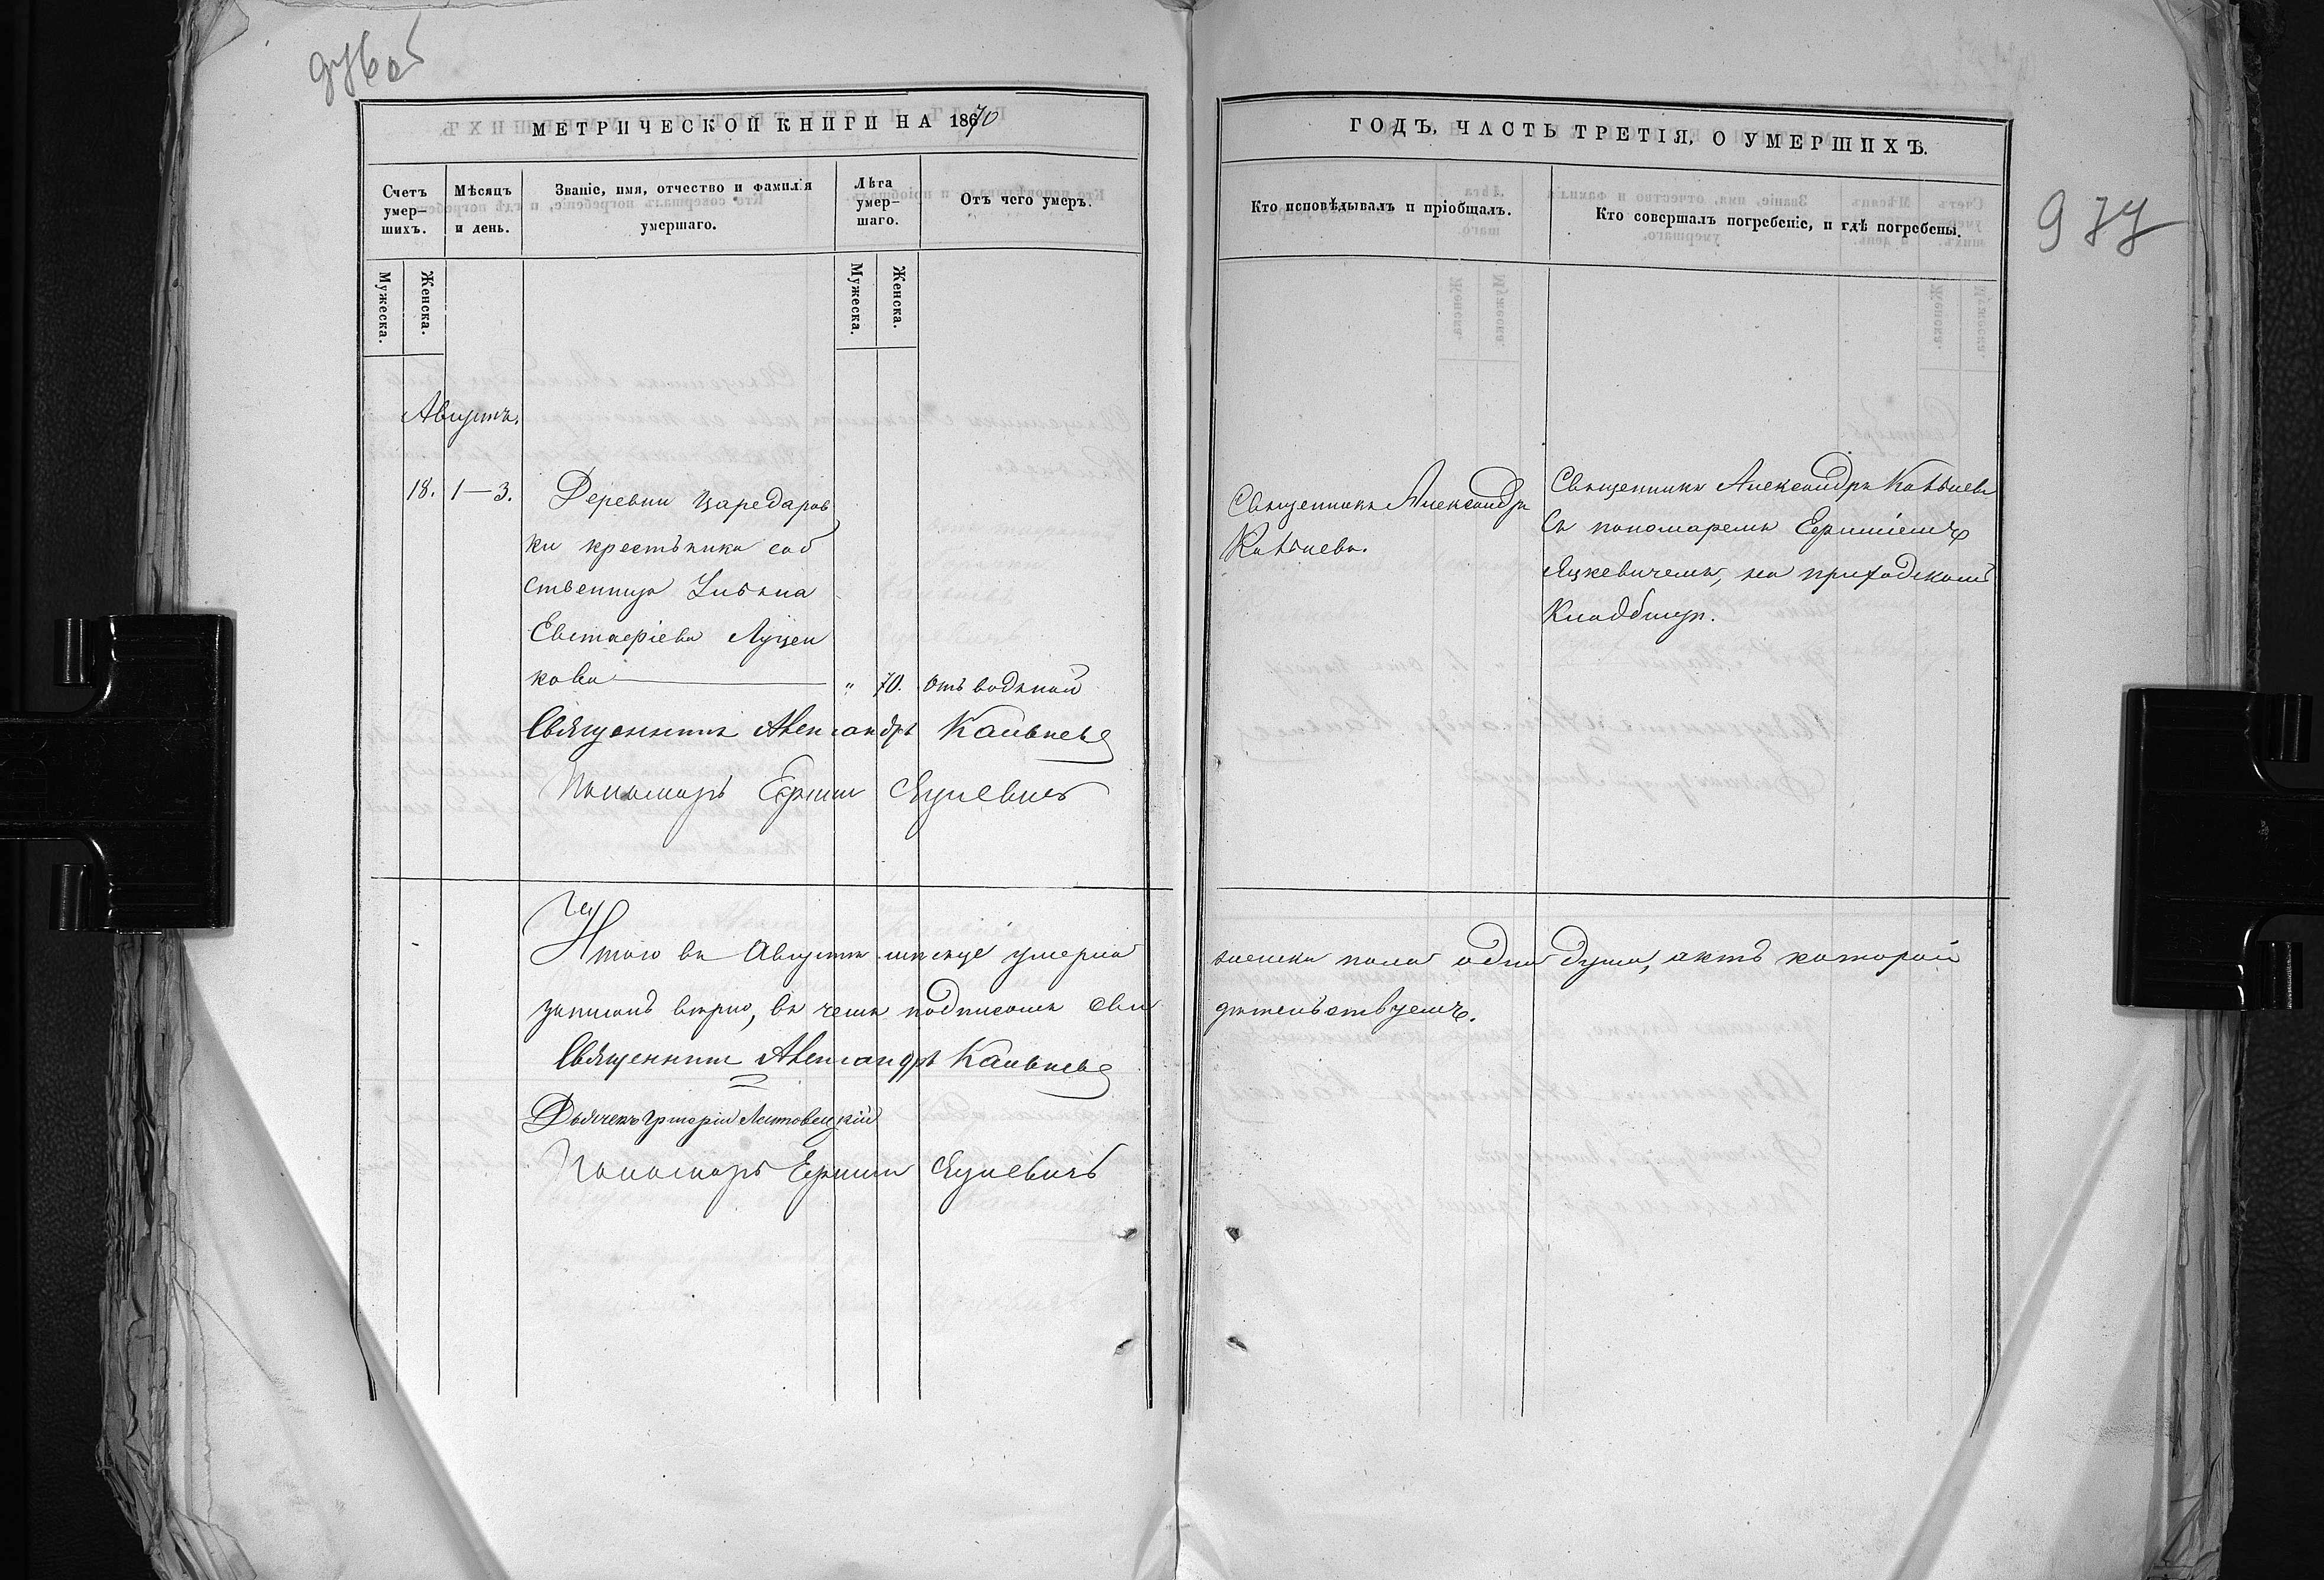 МЕТРИЧЕСКОЙ КНИГИ НА 1870
ГОДЪ, ЧАСТЬ ТРЕТІЯ, О УМЕРШИХЪ.
977
Счетъ умер-шихъ.
Мѣсяцъ и день.
Званіе, имя, отчество и фамилія умершаго.
Лѣта умер-шаго.
Отъ чего умеръ.
Кто исповѣдывалъ и пріобщалъ.
Кто совершалъ погребеніе, и гдѣ погребены.
Мужеска.
Женска.
Мужеска.
Женска.
Августъ.
18. 1—3.
Деревни Царедаров
ки крестьянка соб
ственница
Евстафіева Луцен
кова — " 70. отъ водяной
Священникъ Александръ
Священникъ Александръ
Съ пономаремъ Ефиміемъ
Яцкевичемъ, на приходскомъ
Кладбищѣ.
Священникъ Александръ
Пономарь Ефимій Яцкевичъ
Итого въ Августѣ мѣсяцѣ умерла женска пола одна душа, актъ которой
записанъ вѣрно, въ чемъ подписомъ сви дѣтельствуемъ.
Священникъ Александръ
Дьячекъ Григорій Литовецкій
Пономарь Ефимій Яцкевичъ